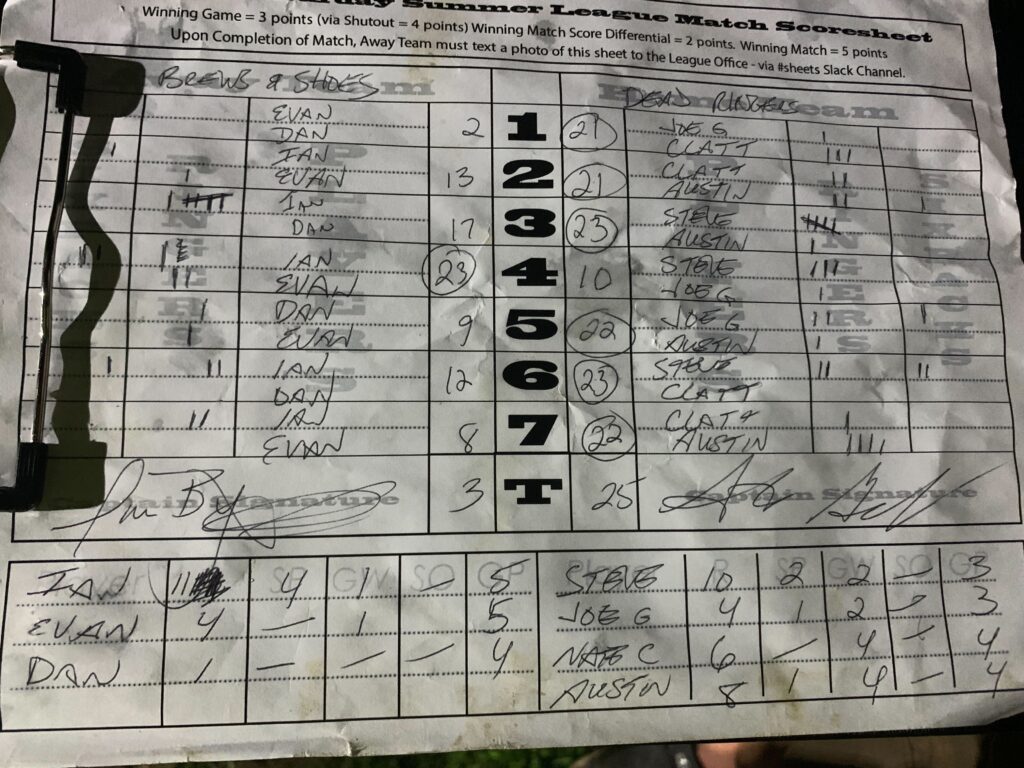 day Summer League Match Scoresheet
Winning Game = 3 points (via Shutout = 4 points) Winning Match Score Differential = 2 points. Winning Match = 5 points
Upon Completion of Match, Away Team must text a photo of this sheet to the League Office - via #sheets Slack Channel.
BREWS & SHOES DEAD RINGERS
EVAN 2 1 21 JOE G I
DAN CLATT III
IAN 13 2 21 CLATT II
EVAN AUSTIN II
IAN 17 3 23 STEVE
DAN AUSTIN I
IAN 23 4 10 STEVE III
EVAN JOE G I
DAN 9 5 22 JOE G II I
EVAN AUSTIN I
I II IAN 12 6 23 STEVE II II
DAN CLATT
II IAN 8 7 22 CLATT I
EVAN AUSTIN IIII
Captain Signature 3 T 25 Captain Signature
IAN 4 1 – 5 STEVE 10 2 2 – 3
EVAN 4 – 1 5 JOE G 4 1 2 – 3
DAN 1 – – – 4 NATE C 6 – 4 – 4
AUSTIN 8 1 4 – 4